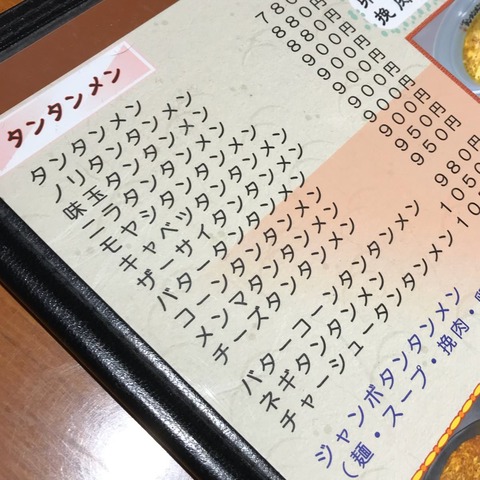 タンタンメン
タンタンメン
ノリタンタンメン
味玉タンタンメン
ニラタンタンメン
モヤシタンタンメン
キャベツタンタンメン
ザーサイタンタンメン
バタータンタンメン
コーンタンタンメン
メンマタンタンメン
チーズタンタンメン
バターコーンタンタンメン
ネギタンタンメン
チャーシュータンタンメン
ジャンボタンタンメン
(麺・スープ・挽肉・
780
880円
880円
900円
900円
900円
900円
950円
950円
980円
1050
10
挽肉